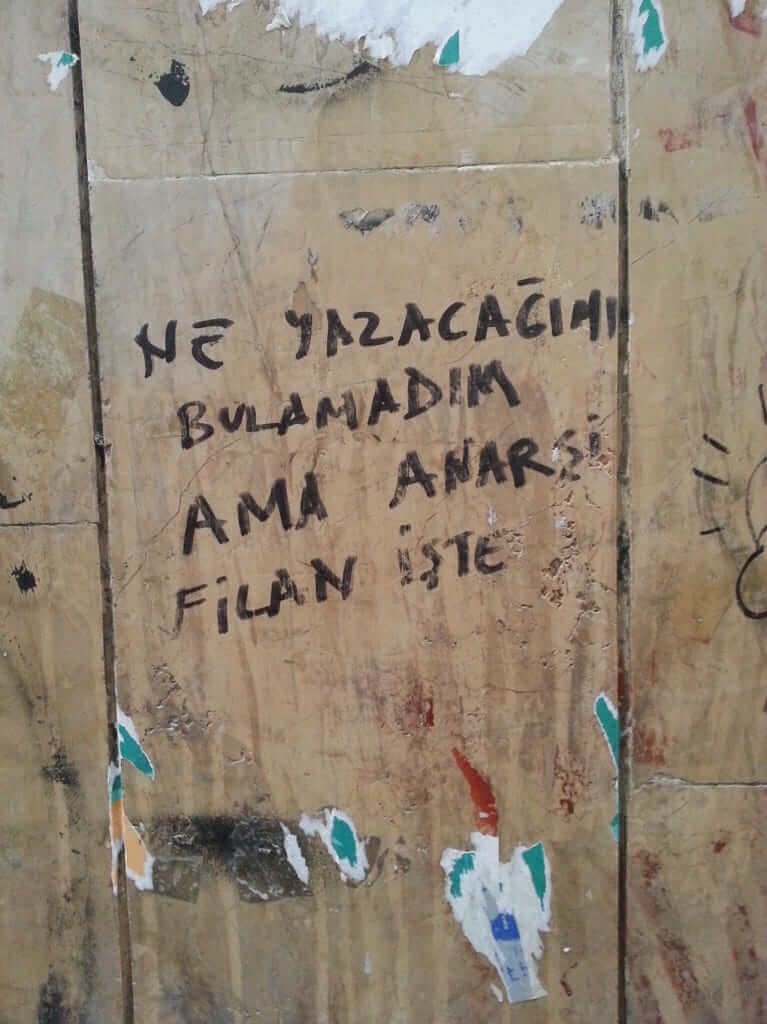 NE YAZACAĞIMI
BULAMADIM
AMA ANARŞİ
FİLAN İŞTE